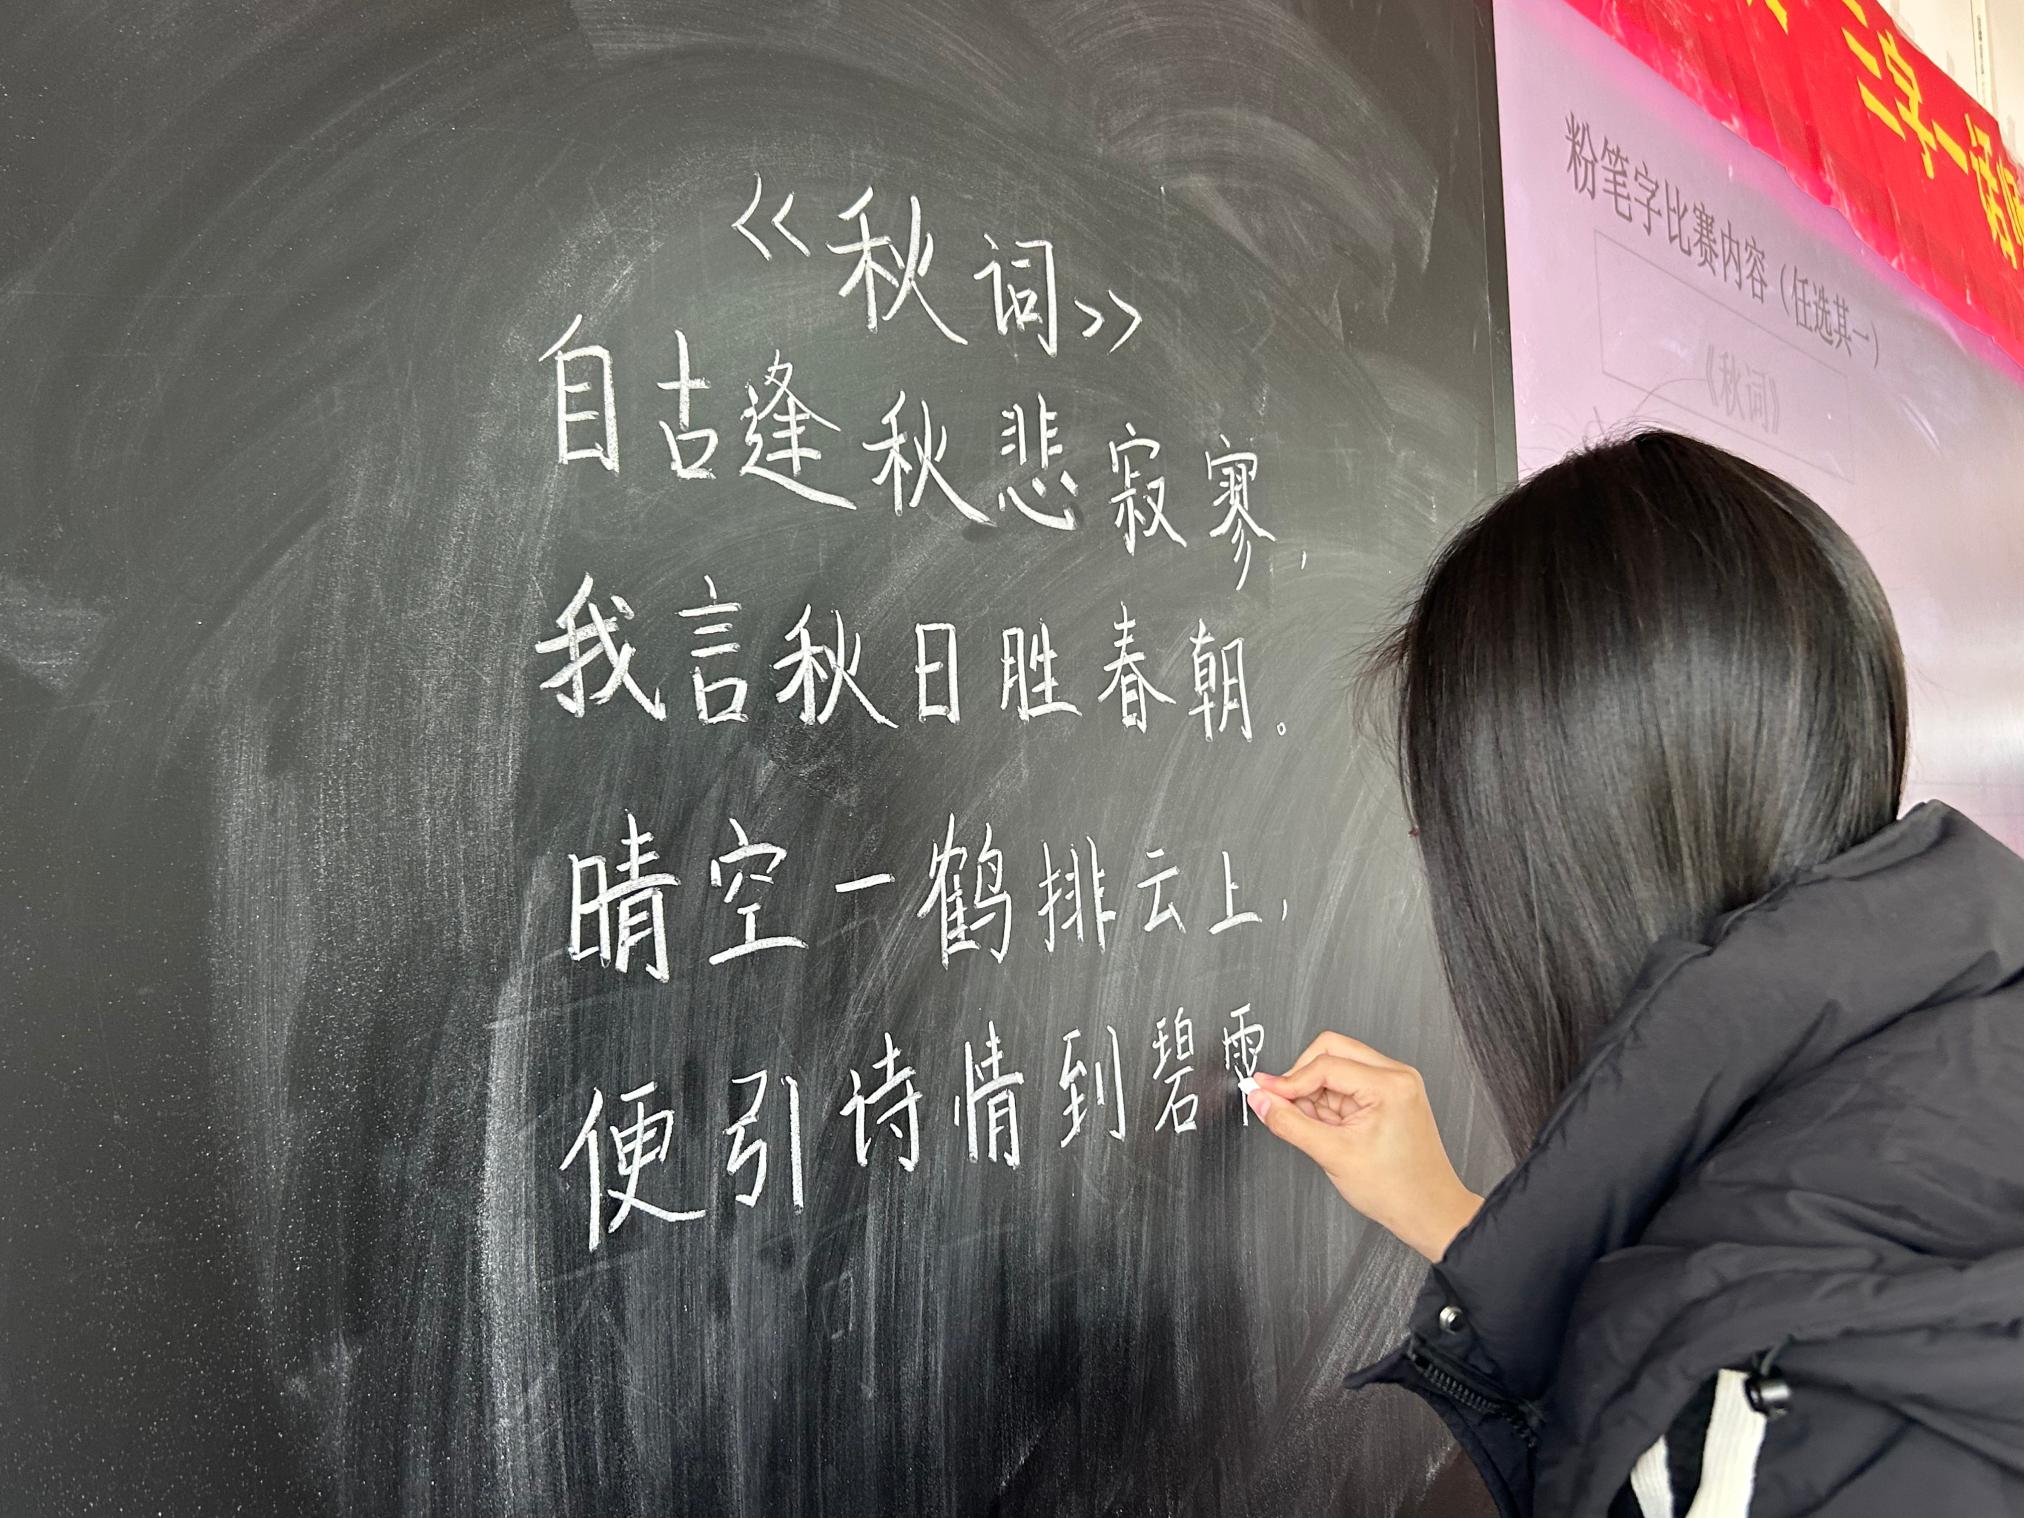 《秋词》
自古逢秋悲寂寥，
我言秋日胜春朝。
晴空一鹤排云上，
便引诗情到碧霄
三字一话
粉笔字比赛内容（任选其一）
《秋词》